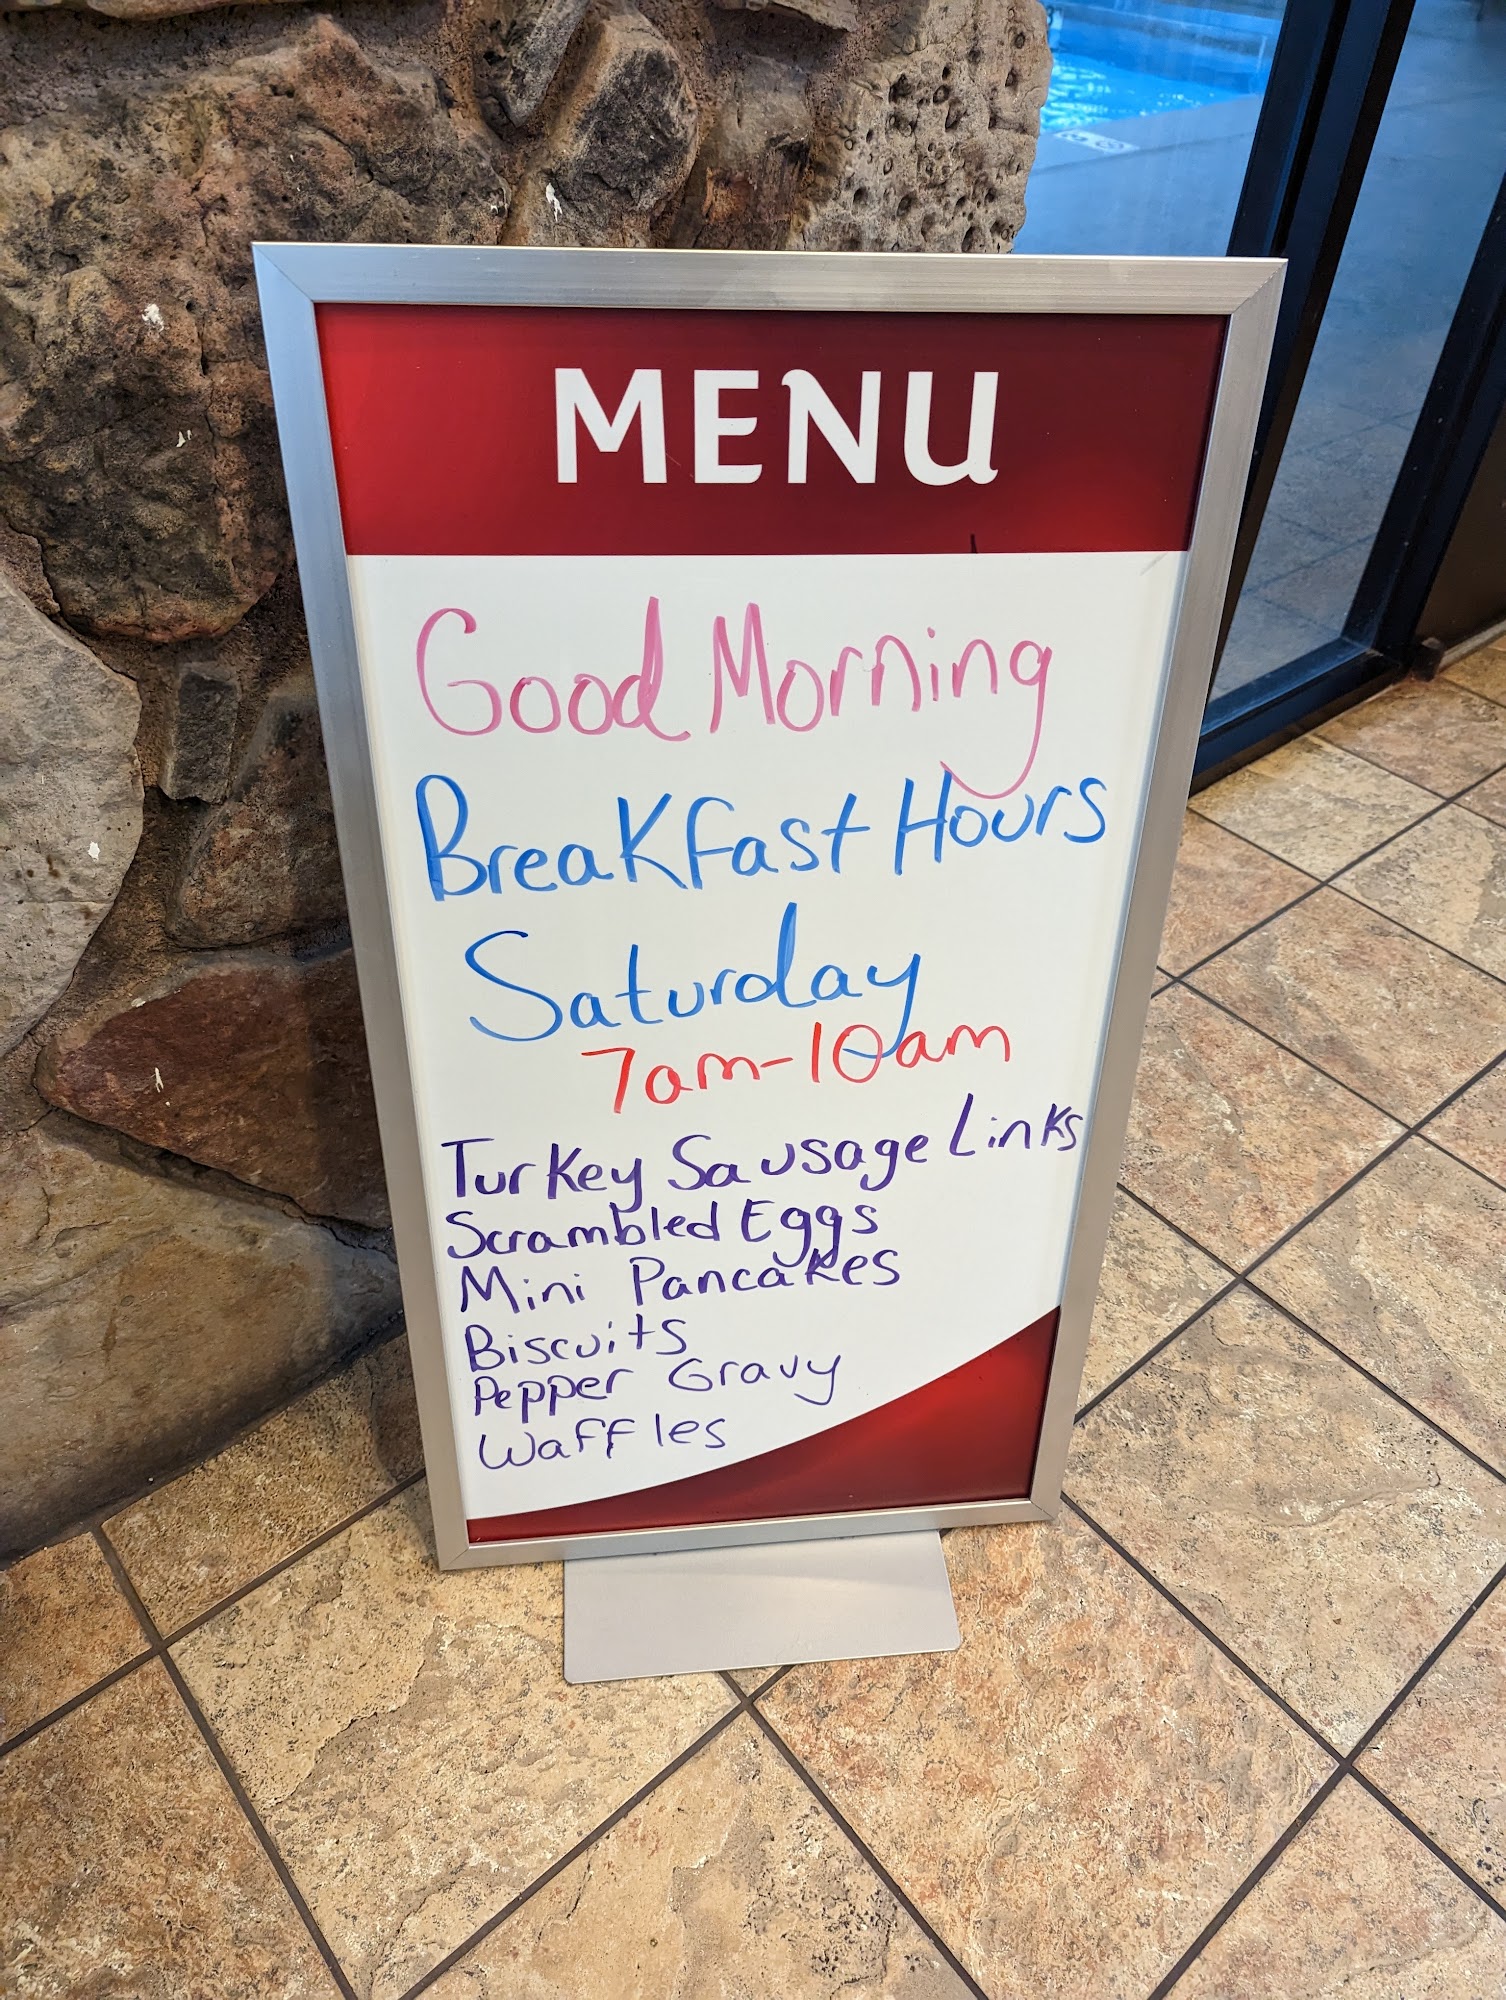 MENU
Good Morning
Breakfast Hours
Saturday
7am-10am
Turkey Sausage Links
Scrambled Eggs
Mini Pancakes
Biscuits
Pepper Gravy
Waffles